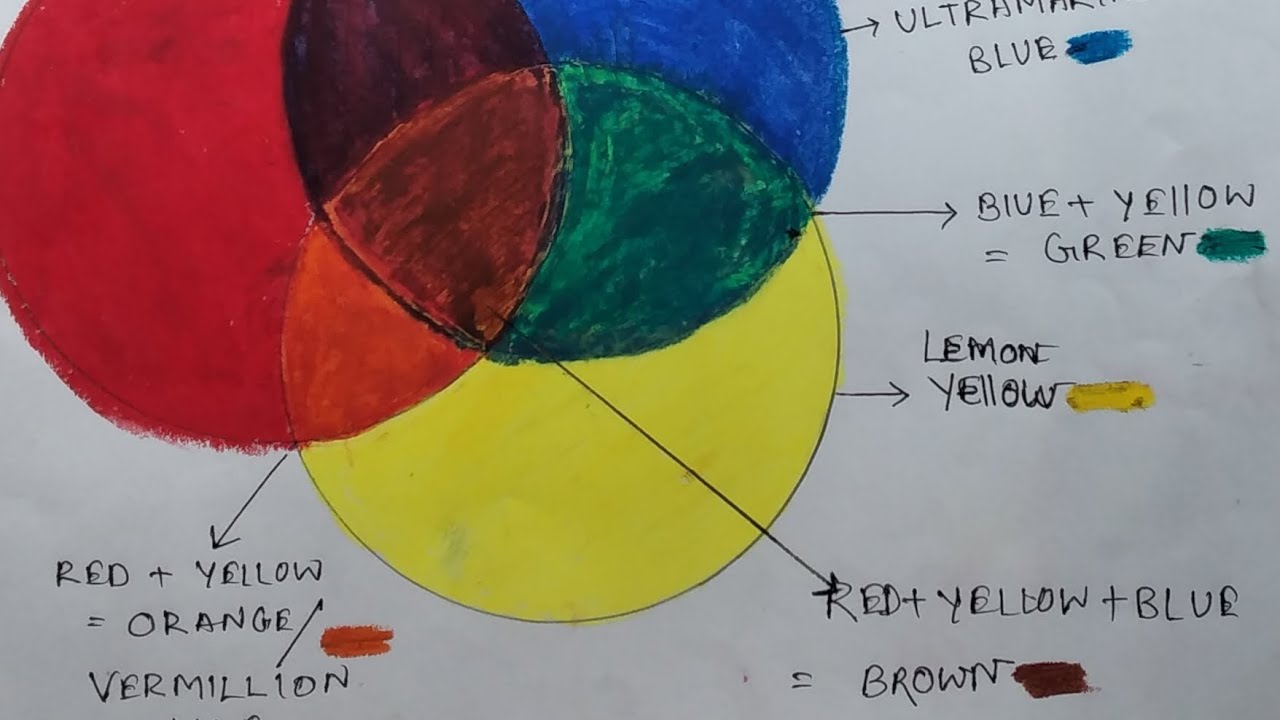 BLUE
BlUE + YEllOW
= GREEN
LEMON
YEllOW
RED + YELLOW
= ORANGE/
VERMILLION
RED + YELLOW + BLUE
= BROWN